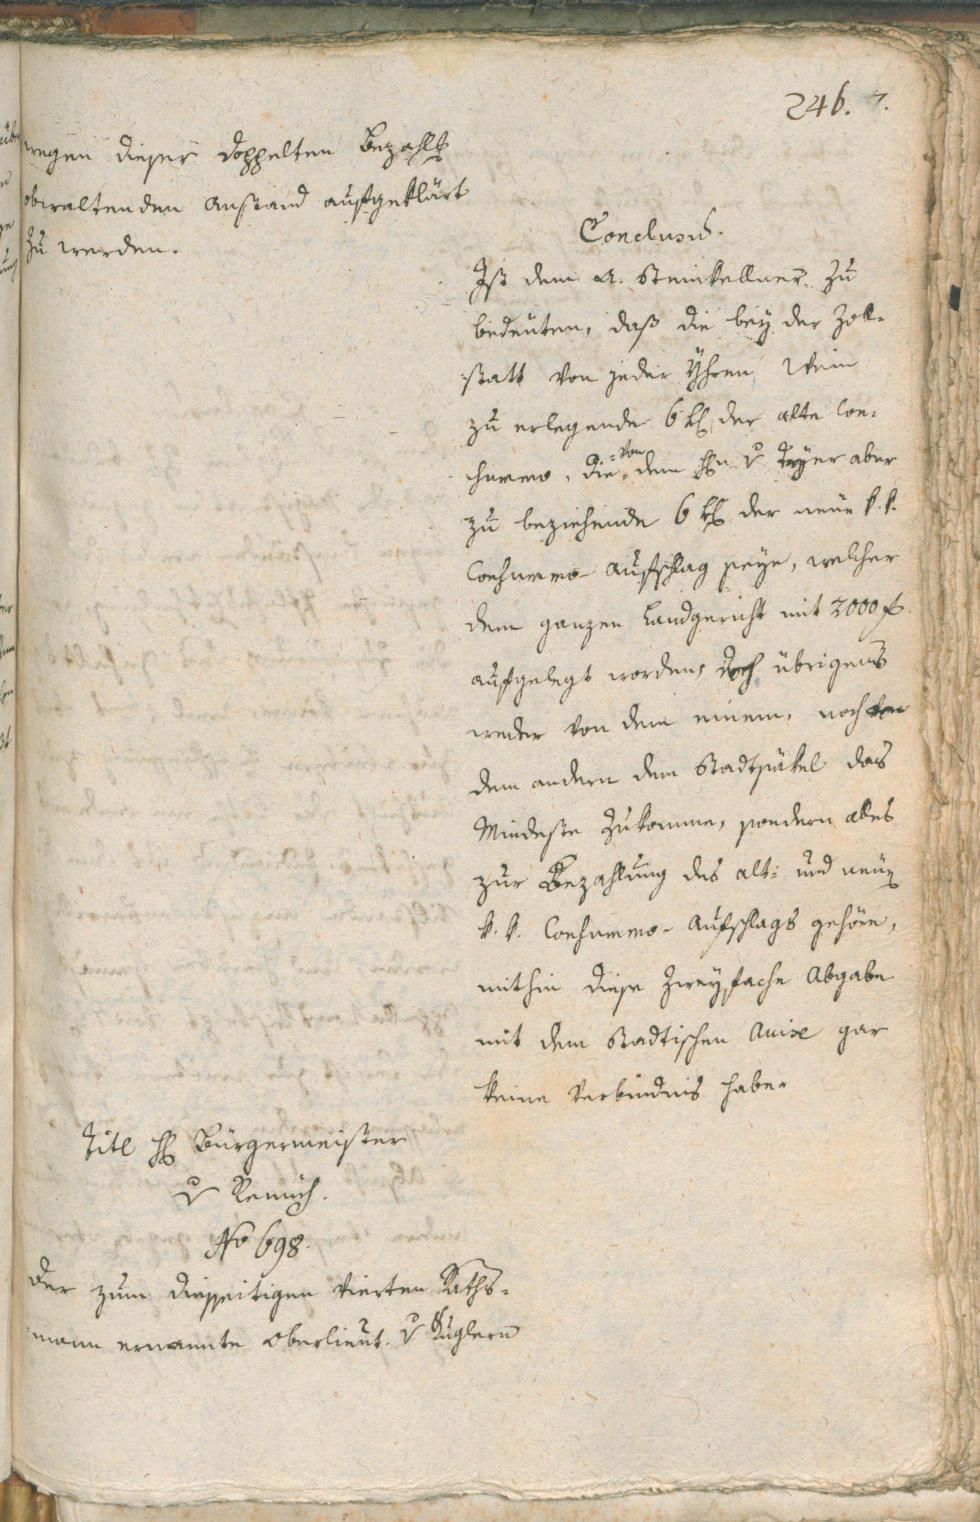 246. 7.
wegen dieser doppelten Bezahlg
obwaltenden Anstand aufgeklärt
zu werden.
Conclusũ.
Ist dem A. Steinkellner zu
bedeuten, daß die bey der Zoll-
statt von jeder Yhren Wein
zu erlegende 6 kr der alte Con-
summo, die von dem Hn v Tryer aber
zu beziehende 6 kr der neue k.k.
Consummo-Aufschlag seye, welcher
dem ganzen Landgericht mit 2000 f
aufgelegt worden, doch übrigens
weder von dem einem, noch von
dem andern dem Stadtsäkel das
Mindeste zukomme, sondern alles
zur Bezahlung des alt- und neuen
k.k. Consummo-Aufschlags gehöre,
mithin diese zweyfache Abgabe
mit dem Stadtischen Accise gar
keine Verbindnis habe.
Titl H Bürgermeister
v Remich.
No 698.
Der zum dießeitigen vierten Raths-
mann ernannte Oberlieut. v Kuglern